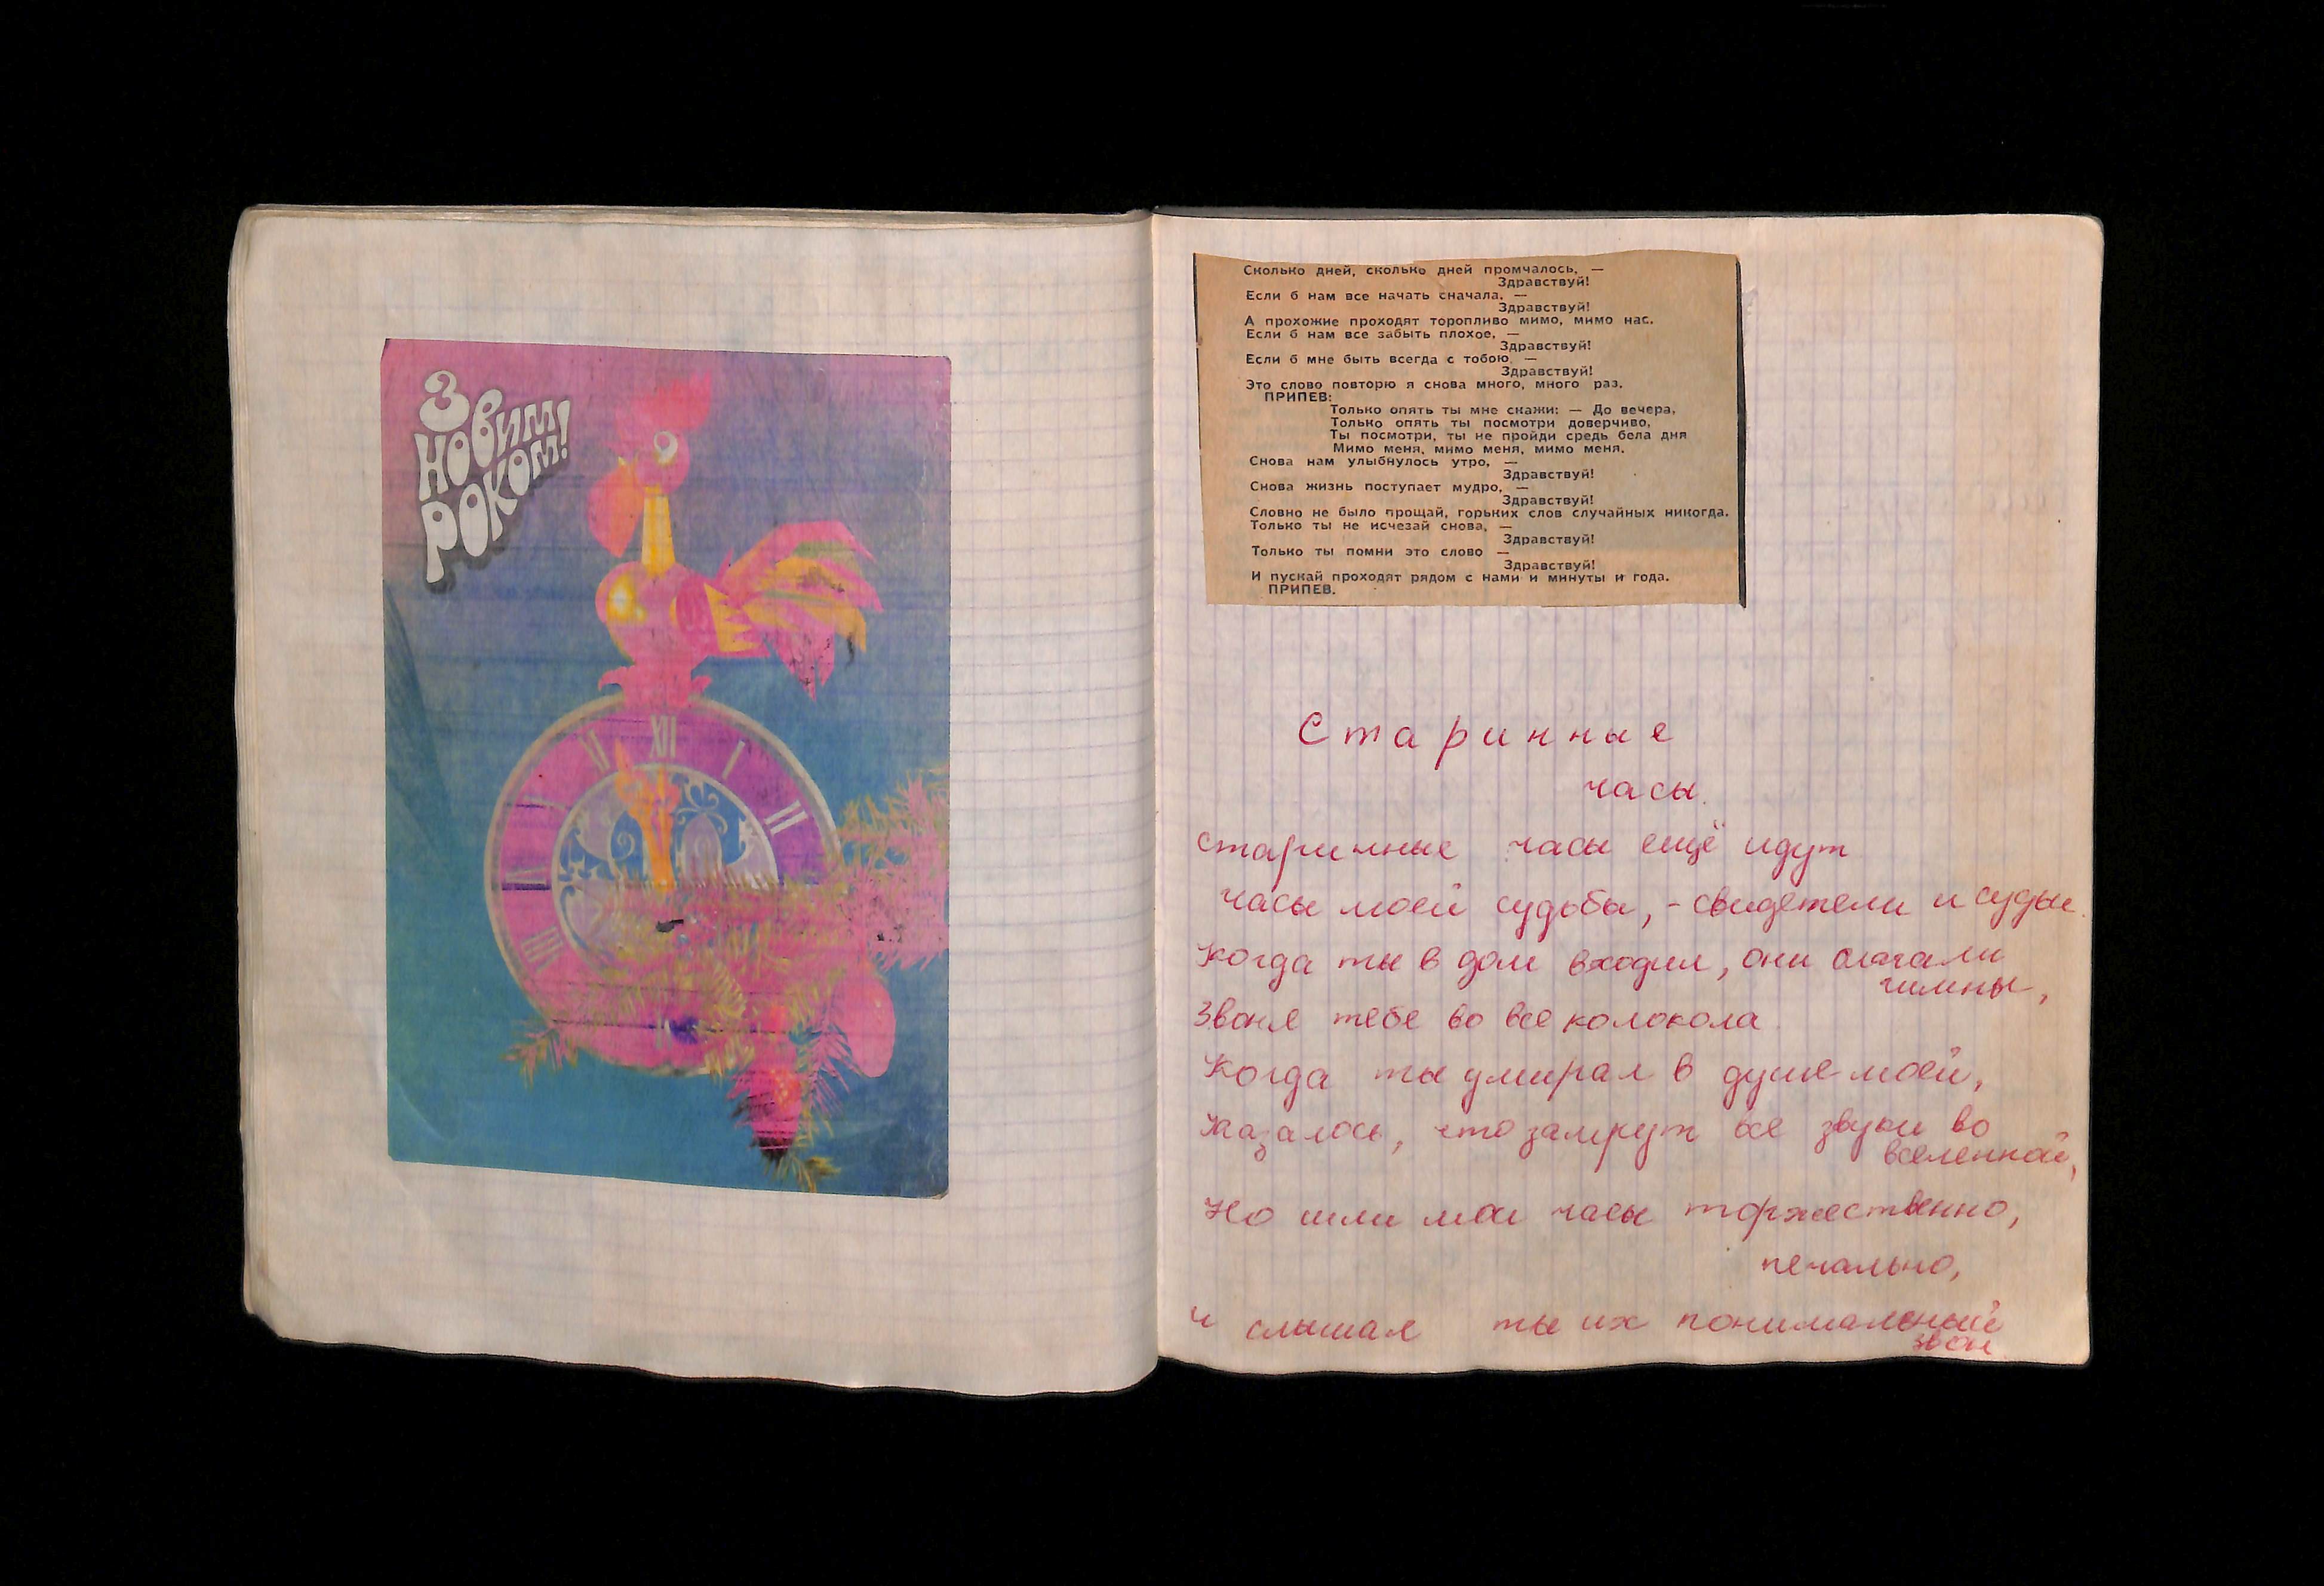 З
новим
роком!
Сколько дней, сколько дней промчалось, —
Здравствуй!
Если б нам все начать сначала, —
Здравствуй!
А прохожие проходят торопливо мимо, мимо нас.
Если б нам все забыть плохое, —
Здравствуй!
Если б мне быть всегда с тобою, —
Здравствуй!
Это слово повторю я снова много, много раз.
ПРИПЕВ:
Только опять ты мне скажи: — До вечера,
Только опять ты посмотри доверчиво,
Ты посмотри, ты не пройди средь бела дня
Мимо меня, мимо меня, мимо меня.
Снова нам улыбнулось утро, —
Здравствуй!
Снова жизнь поступает мудро, —
Здравствуй!
Словно не было прощай, горьких слов случайных никогда.
Только ты не исчезай снова, —
Здравствуй!
Только ты помни это слово —
Здравствуй!
И пускай проходят рядом с нами и минуты и года.
ПРИПЕВ.
Старинные
часы.
старинные часы ещё идут
часы моей судьбы, - свидетели и судьи.
Когда ты в дом входил, они слагали
гимны,
Звоня тебе во все колокола.
Когда ты умирал в душе моей,
Казалось, что замрут все звуки во
вселенной,
Но шли мои часы торжественно,
печально,
и слышал ты их
звон
XII
I
II